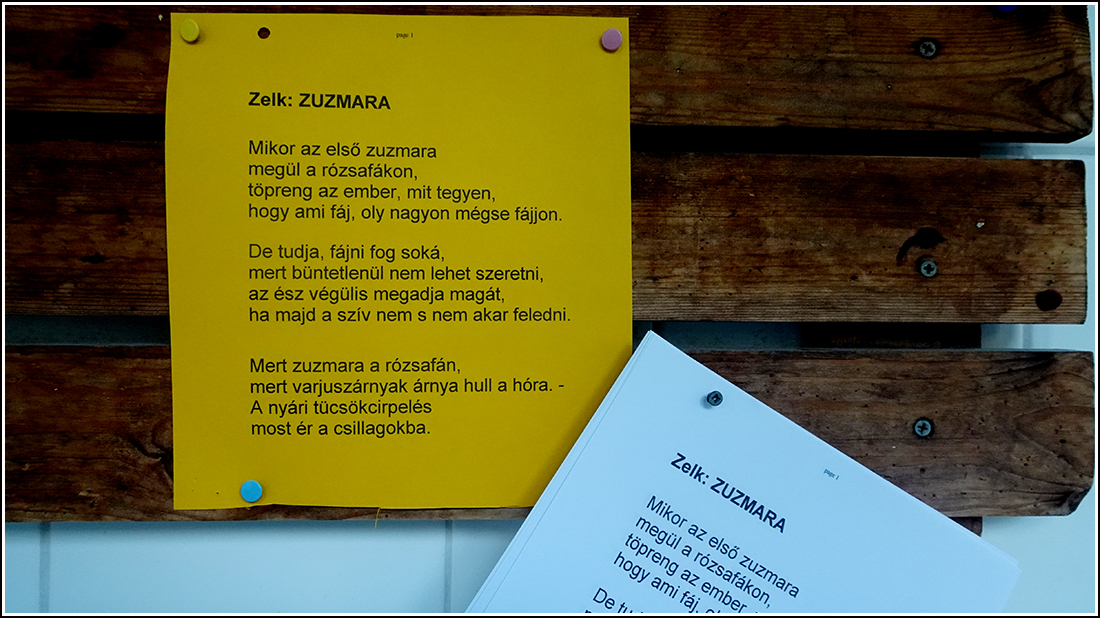 page 1
Zelk: ZUZMARA
Mikor az első zuzmara
megül a rózsafákon,
töpreng az ember, mit tegyen,
hogy ami fáj, oly nagyon mégse fájjon.
De tudja, fájni fog soká,
mert büntetlenül nem lehet szeretni,
az ész végülis megadja magát,
ha majd a szív nem s nem akar feledni.
Mert zuzmara a rózsafán,
mert varjuszárnyak árnya hull a hóra. -
A nyári tücsökcirpelés
most ér a csillagokba.
page 1
Zelk: ZUZMARA
Mikor az első zuzmara
megül a rózsafákon,
töpreng az ember,
hogy ami fáj,
De